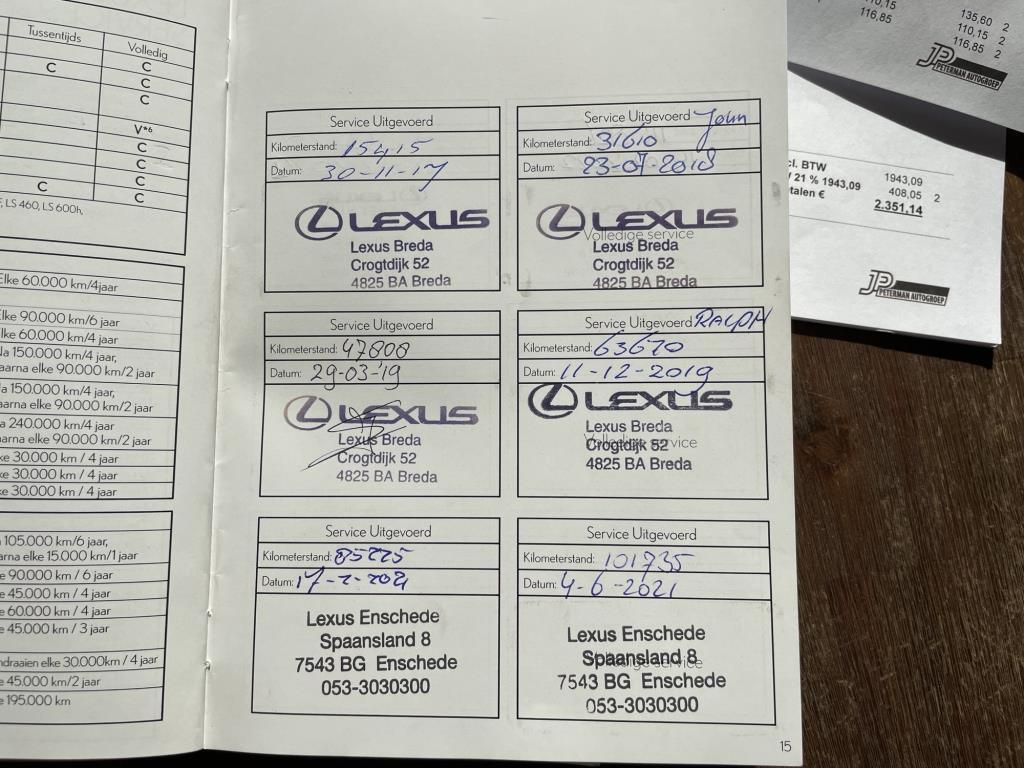 Tussentijds
Volledig
C
C
C
C
V*6
C
C
C
C
C
LS 460, LS 600h,
Elke 60.000 km/4jaar
Elke 90.000 km/6 jaar
Elke 60.000 km/4 jaar
150.000 km/4 jaar,
elke 90.000 km/2 jaar
150.000 km/4 jaar,
elke 90.000 km/2 jaar
240.000 km/4 jaar
elke 90.000 km/2 jaar
30.000 km / 4 jaar
30.000 km / 4 jaar
30.000 km / 4 jaar
105.000 km/6 jaar,
elke 15.000 km/1 jaar
90.000 km / 6 jaar
45.000 km / 4 jaar
60.000 km / 4 jaar
45.000 km / 3 jaar
elke 30.000km / 4 jaar
45.000 km/2 jaar
195.000 km
Service Uitgevoerd
Kilometerstand: 15415
Datum: 30-11-17
LEXUS
Lexus Breda
Crogtdijk 52
4825 BA Breda
Service Uitgevoerd John
Kilometerstand: 31610
Datum: 23-07-2018
LEXUS
Volledige service
Lexus Breda
Crogtdijk 52
4825 BA Breda
Service Uitgevoerd
Kilometerstand: 47808
Datum: 29-03-'19
LEXUS
Lexus Breda
Crogtdijk 52
4825 BA Breda
Service Uitgevoerd RALPH
Kilometerstand: 63670
Datum: 11-12-2019
LEXUS
Lexus Breda
Volledige service
Crogtdijk 52
4825 BA Breda
Service Uitgevoerd
Kilometerstand: 85225
Datum: 17-2-2021
Lexus Enschede
Spaansland 8
7543 BG Enschede
053-3030300
Service Uitgevoerd
Kilometerstand: 101735
Datum: 4-6-2021
Lexus Enschede
Spaansland 8
7543 BG Enschede
053-3030300
15
110,15
116,85
135,60 2
110,15 2
116,85 2
JP
PETERMAN AUTOGROEP
BTW 1943,09
21 % 1943,09 408,05 2
€ 2.351,14
JP
PETERMAN AUTOGROEP